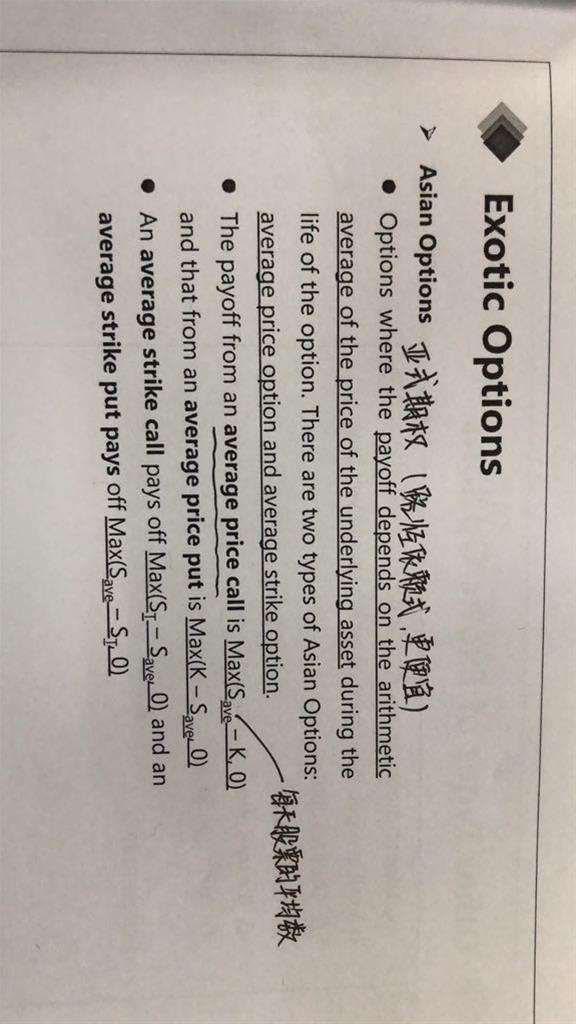 Exotic Options
➢ Asian Options 亚式期权 (路径依赖式,更便宜)
● Options where the payoff depends on the arithmetic
average of the price of the underlying asset during the
life of the option. There are two types of Asian Options:
average price option and average strike option.
● The payoff from an average price call is Max(Save – K, 0)
每天股票的平均数
and that from an average price put is Max(K – Save, 0)
● An average strike call pays off Max(ST – Save, 0) and an
average strike put pays off Max(Save – ST, 0)